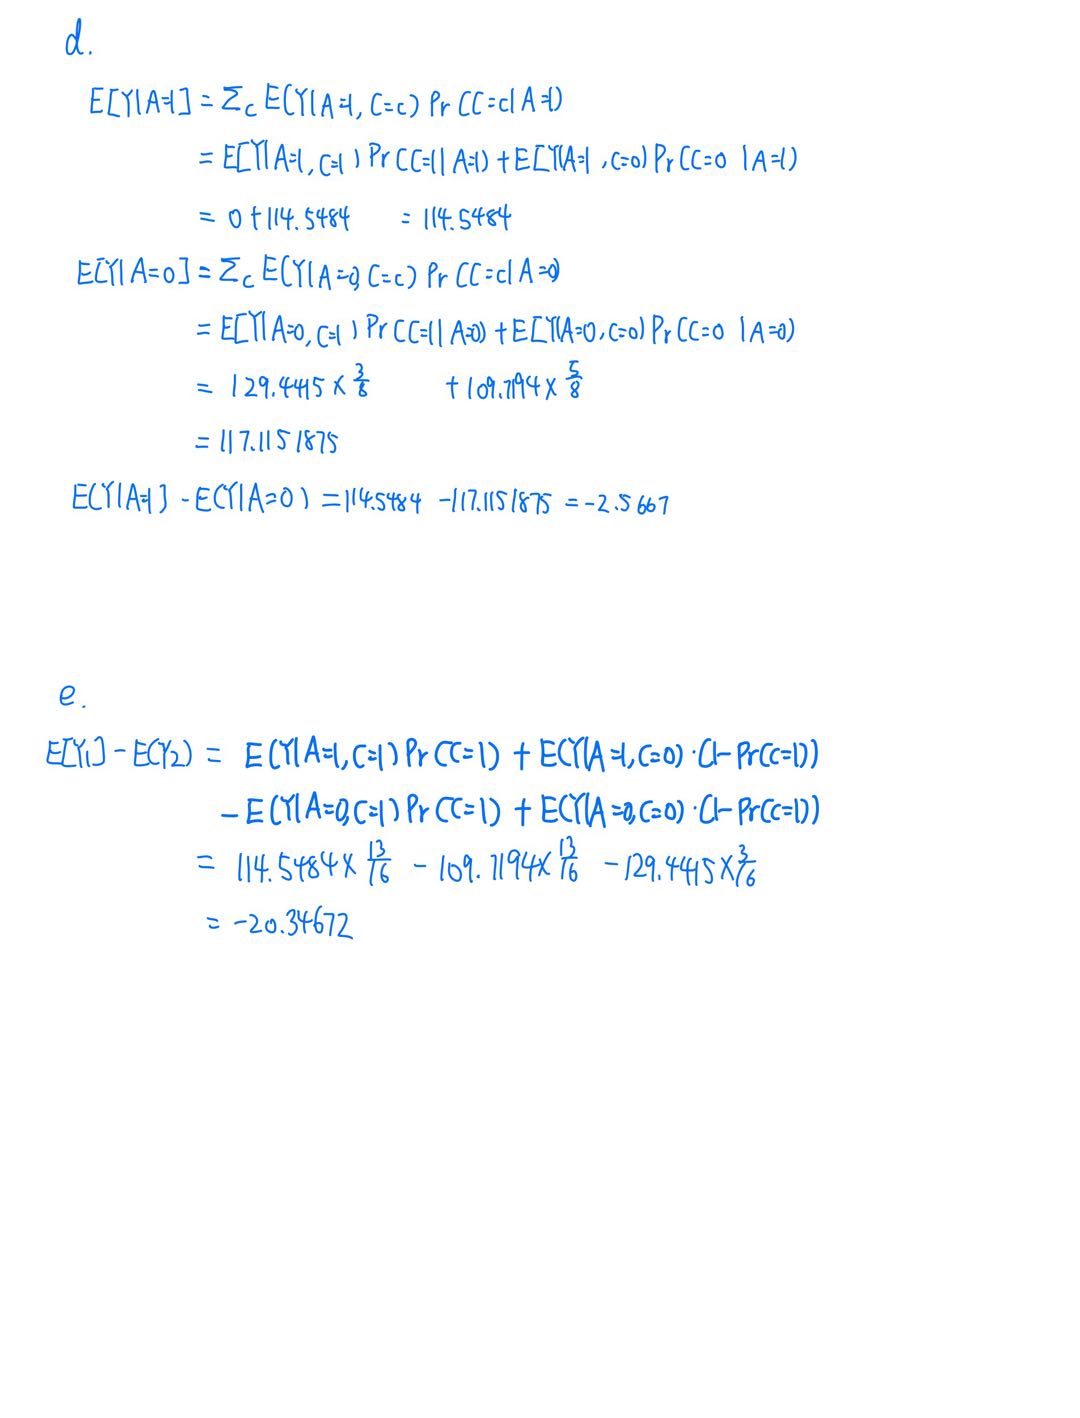 d.
E[Y|A=1] = Σ_c E(Y|A=1, C=c) Pr(C=c|A=1)
= E[Y|A=1, C=1) Pr(C=1|A=1) + E[Y|A=1, C=0) Pr(C=0 |A=1)
= 0+114.5484 = 114.5484
E[Y|A=0] = Σ_c E(Y|A=0, C=c) Pr(C=c|A=0)
= E[Y|A=0, C=1) Pr(C=1|A=0) + E[Y|A=0, C=0) Pr(C=0 |A=0)
= 129.4415 × 3/8 + 109.7194 × 5/8
= 117.1151875
E(Y|A=1] - E(Y|A=0) = 114.5484 - 117.1151875 = -2.5667
e.
E[Y₁] - E(Y₂) = E(Y|A=1, C=1) Pr(C=1) + E(Y|A=1, C=0)·(1-Pr(C=1))
- E(Y|A=0, C=1) Pr(C=1) + E(Y|A=0, C=0)·(1-Pr(C=1))
= 114.5484 × 13/16 - 109.7194 × 13/16 - 129.4415 × 3/16
= -20.34672